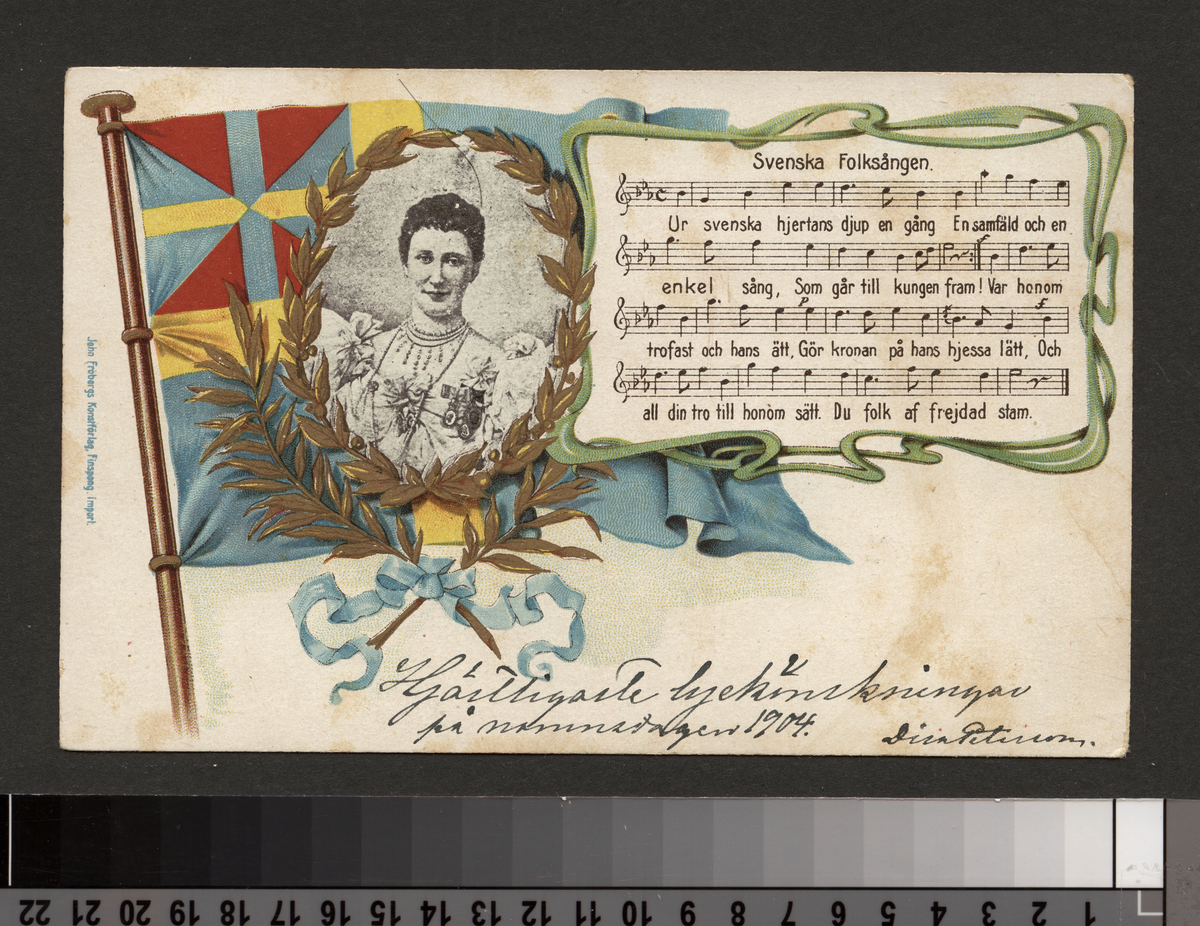 Svenska Folksången.
Ur svenska hjertans djup en gång En samfäld och en
enkel sång, Som går till kungen fram! Var honom
trofast och hans ätt, Gör kronan på hans hjessa lätt, Och
all din tro till honom sätt. Du folk af frejdad stam.
John Fröbergs Konstförlag, Finspong. Import.
Hjärtligaste lyckönskningar
på namnsdagen 1904.
Peterson.
22 21 20 19 18 17 16 15 14 13 12 11 10 9 8 7 6 5 4 3 2 1